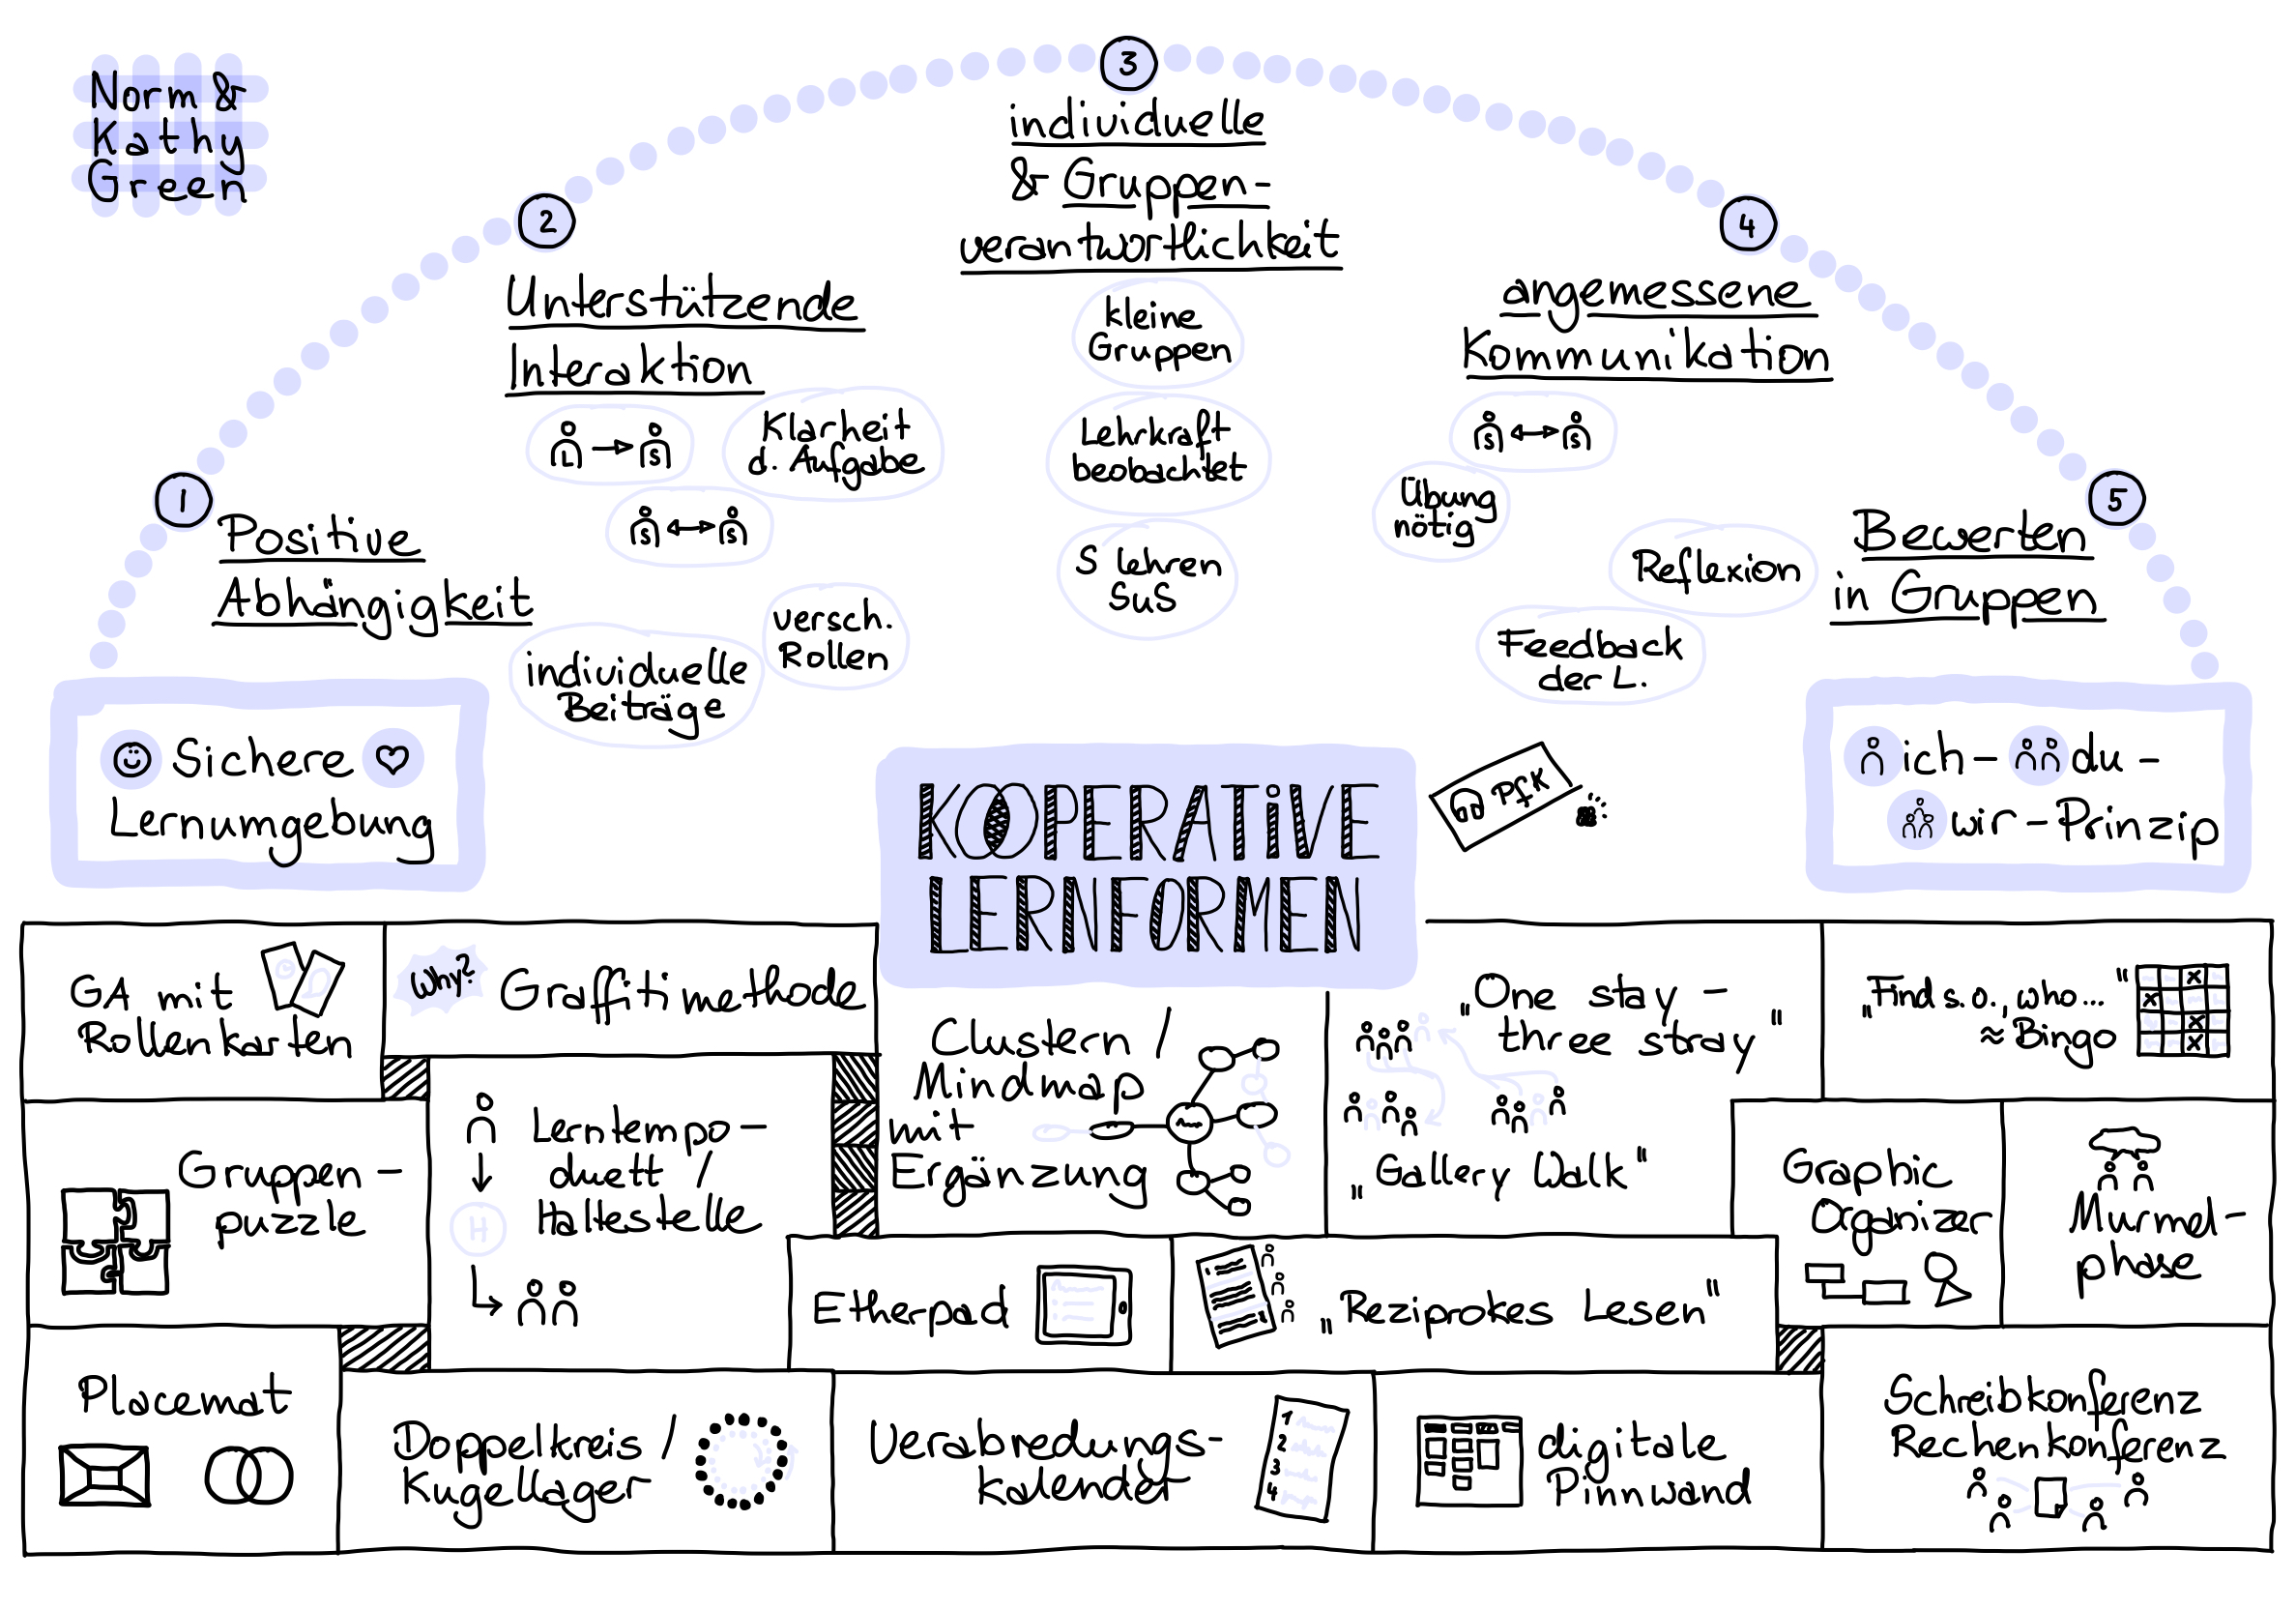 Norm &
Kathy
Green
1
Positive
Abhängigkeit
2
Unterstützende
Interaktion
L
S
Klarheit
d. Aufgabe
S
S
versch.
Rollen
individuelle
Beiträge
3
individuelle
& Gruppen-
verantwortlichkeit
kleine
Gruppen
Lehrkraft
beobachtet
S lehren
SuS
4
angemessene
Kommunikation
S
S
Übung
nötig
Reflexion
Feedback
der L.
5
Bewerten
in Gruppen
Sichere
Lernumgebung
KOOPERATiVE
LERNFORMEN
PfK
ich- du-
wir-Prinzip
GA mit
Rollenkarten
Why?
Graffitimethode
Clustern /
Mindmap
mit
Ergänzung
„One stay -
three stray"
„Gallery Walk"
„Find s.o., who..."
≈ Bingo
x
x
x
x
Gruppen-
puzzle
Lerntempo-
duett /
Haltestelle
H
Graphic
Organizer
Murmel-
phase
Etherpad
„Reziprokes Lesen"
Placemat
Doppelkreis /
Kugellager
Verabredungs-
kalender
1
2
3
4
digitale
Pinnwand
Schreibkonferenz
Rechenkonferenz